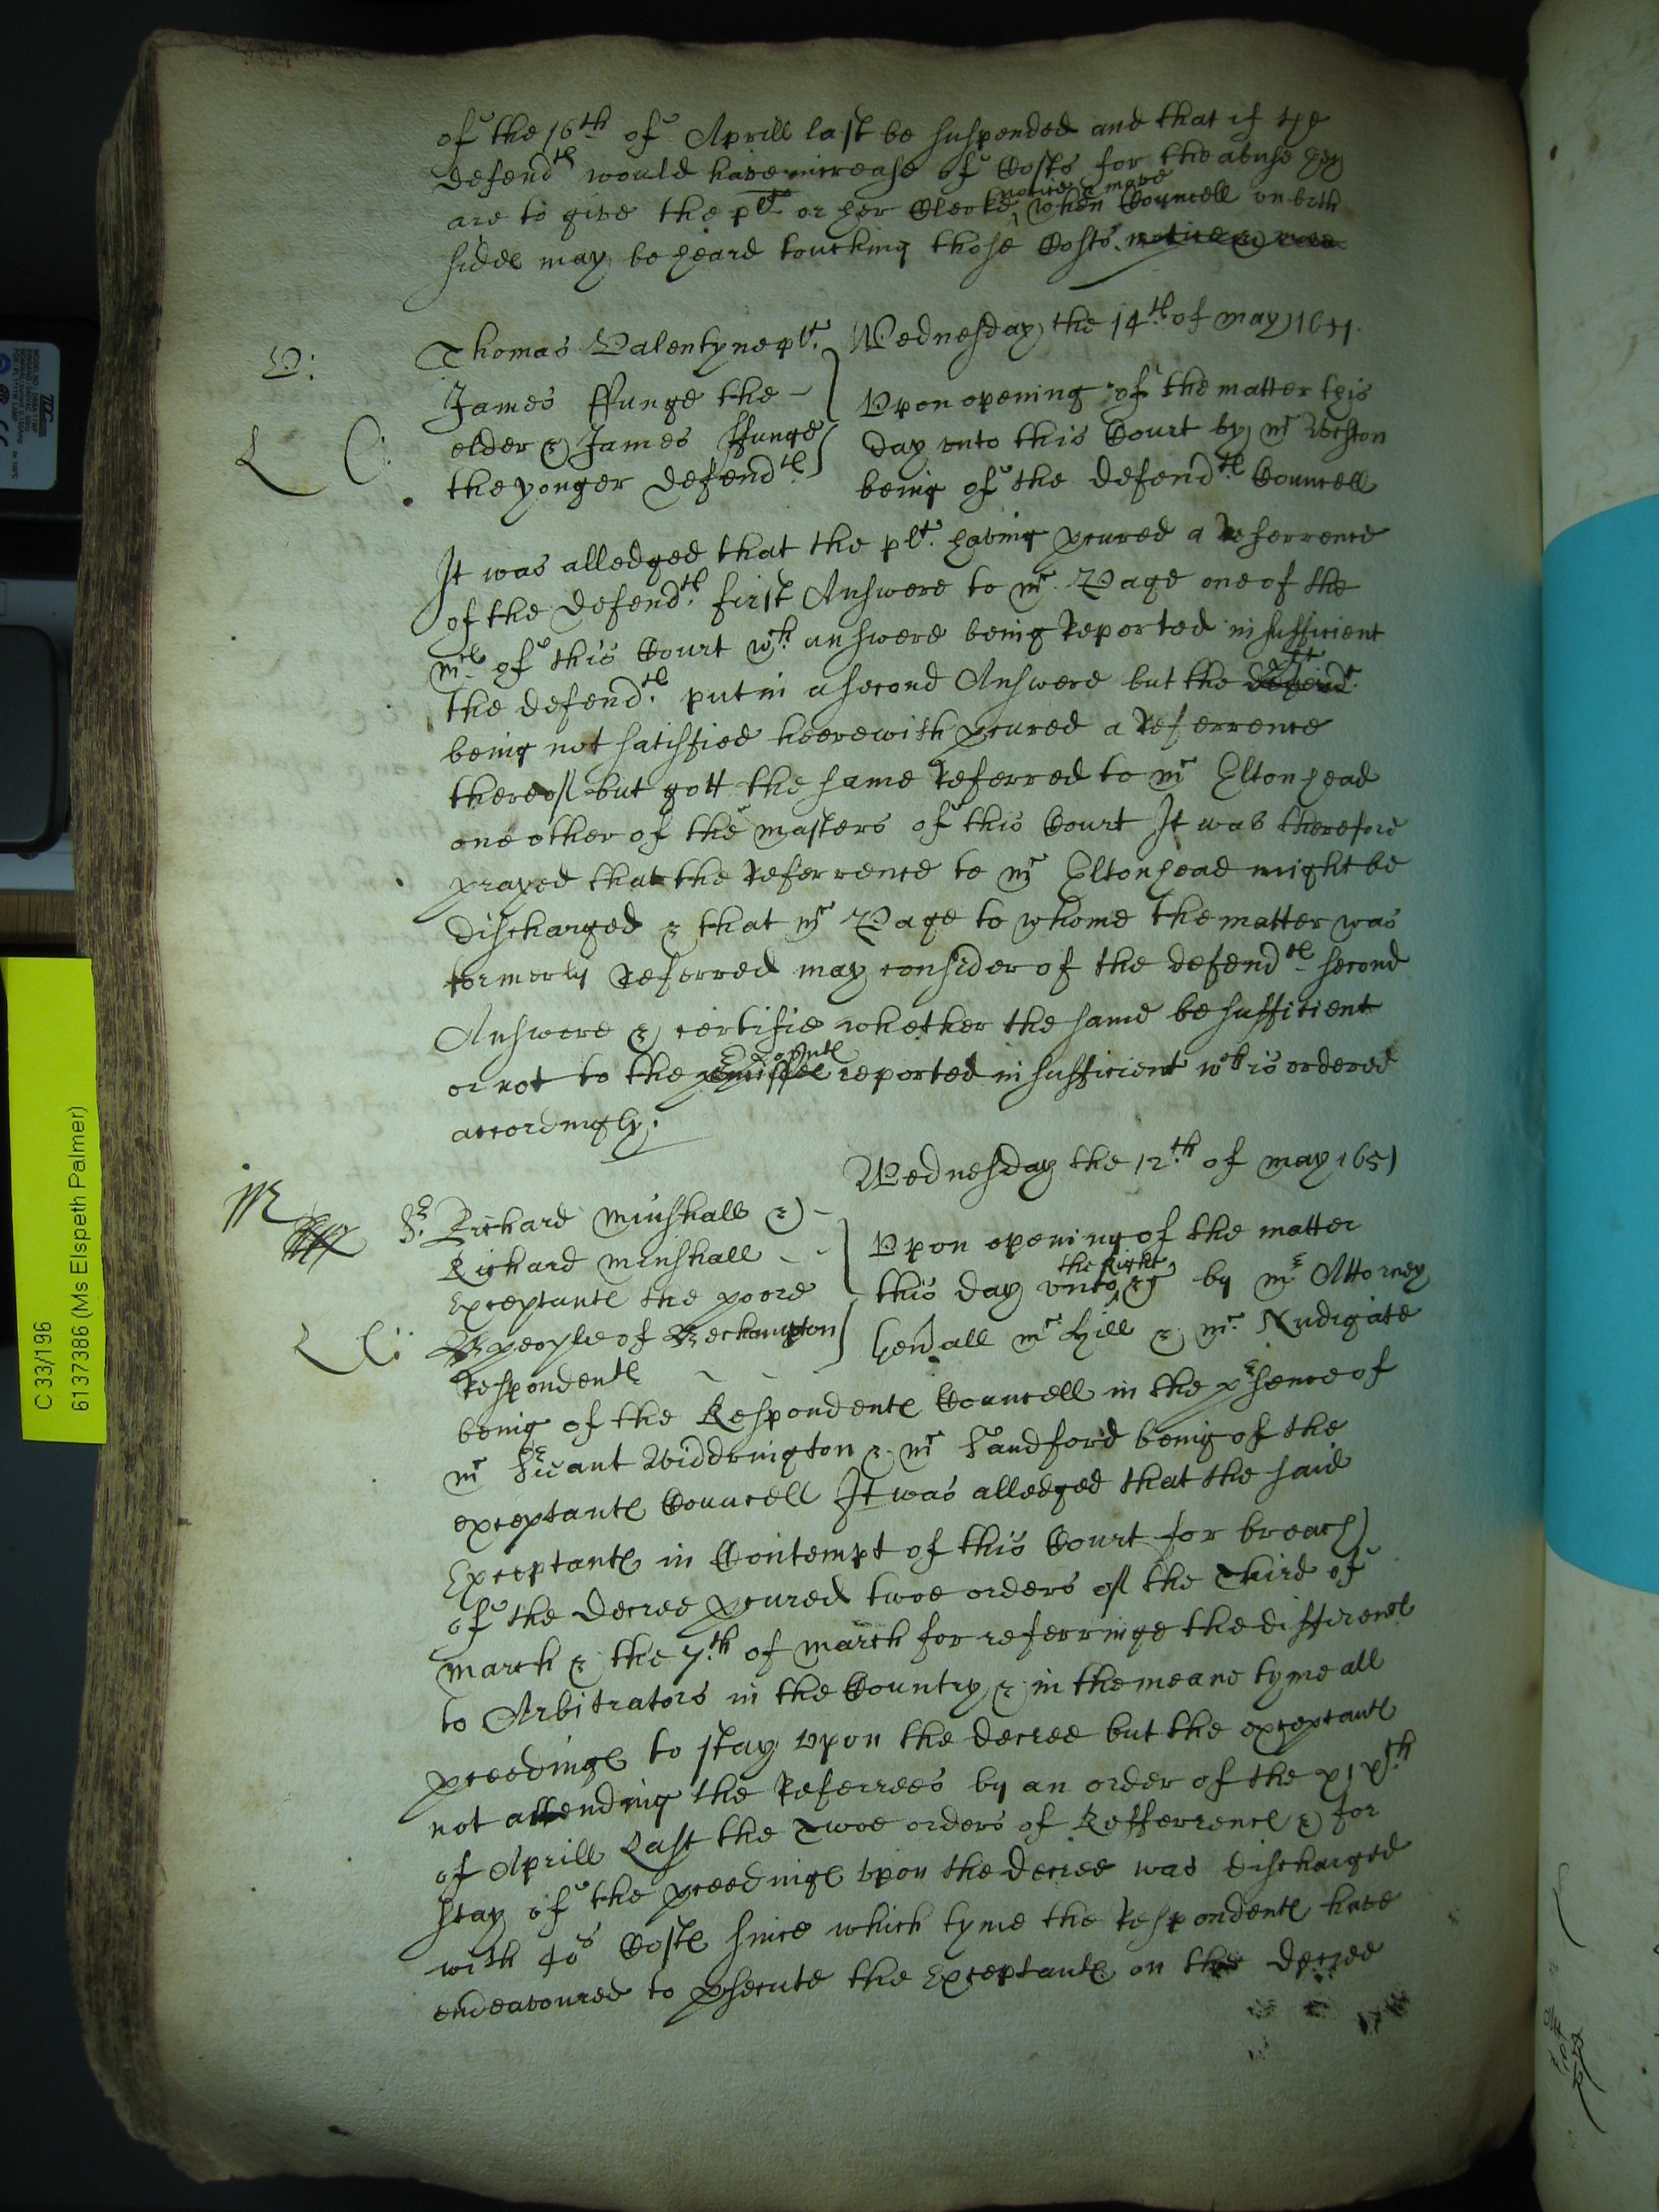 of the 16th of Aprill last be suspended and that if the
defendts would have increase of Costs for the abuse they
notice & move
are to give the plt or her Clerke when Councell on both
sides may be heard touching those Costs. notice & move
V:
Thomas Valentyne plt. Wednesday the 14th of may 1651.
James ffunge the
Upon opening of the matter this
elder & James ffunge
day unto this Court by mr Weston
L C:
the yonger defendts
being of the defendts Councell
It was alledged that the plt. having pcured a Referrence
of the defendts first Answere to mr Page one of the
mrs of this Court wch answere being Reported insufficient
plt
the defendts put in a second Answere but the defendt
being not satisfied heerewith pcured a Referrence
thereof but gott the same Referred to mr Eltonhead
one other of the masters of this Court It was therefore
prayed that the Referrence to mr Eltonhead might be
discharged & that mr Page to whome the matter was
formerly Referred may consider of the defendts second
Answere & certifie whether the same be sufficient
or not to the reported insufficient wch is ordered
accordingly.
Wednesday the 12th of may 1651
M
Sr. Richard Minshall &
Richard Minshall
Upon opening of the matter
the Right
Exceptants the poore
this day unto by mr Attorney
L C:
people of
Genall mr Hill & mr Nudigate
Respondents
being of the Respondents Councell in the psence of
mr Sriant Widdrington & mr Sandford being of the
exceptants Councell It was alledged that the said
Exceptants in Contempt of this Court for breach
of the decree pcured twoe orders of the Third of
March & the 7th of March for referringe the differences
to Arbitrators in the Country & in the meane tyme all
pceedings to stay upon the decree but the exceptants
not attending the Referrees by an order of the
of Aprill Last the Twoe orders of Refferrence & for
stay of the pceedings upon the decree was discharged
with 40s Costs since which tyme the Respondents have
endeavoured to psecute the Exceptants on the decree
C 33/196
6137386 (Ms Elspeth Palmer)